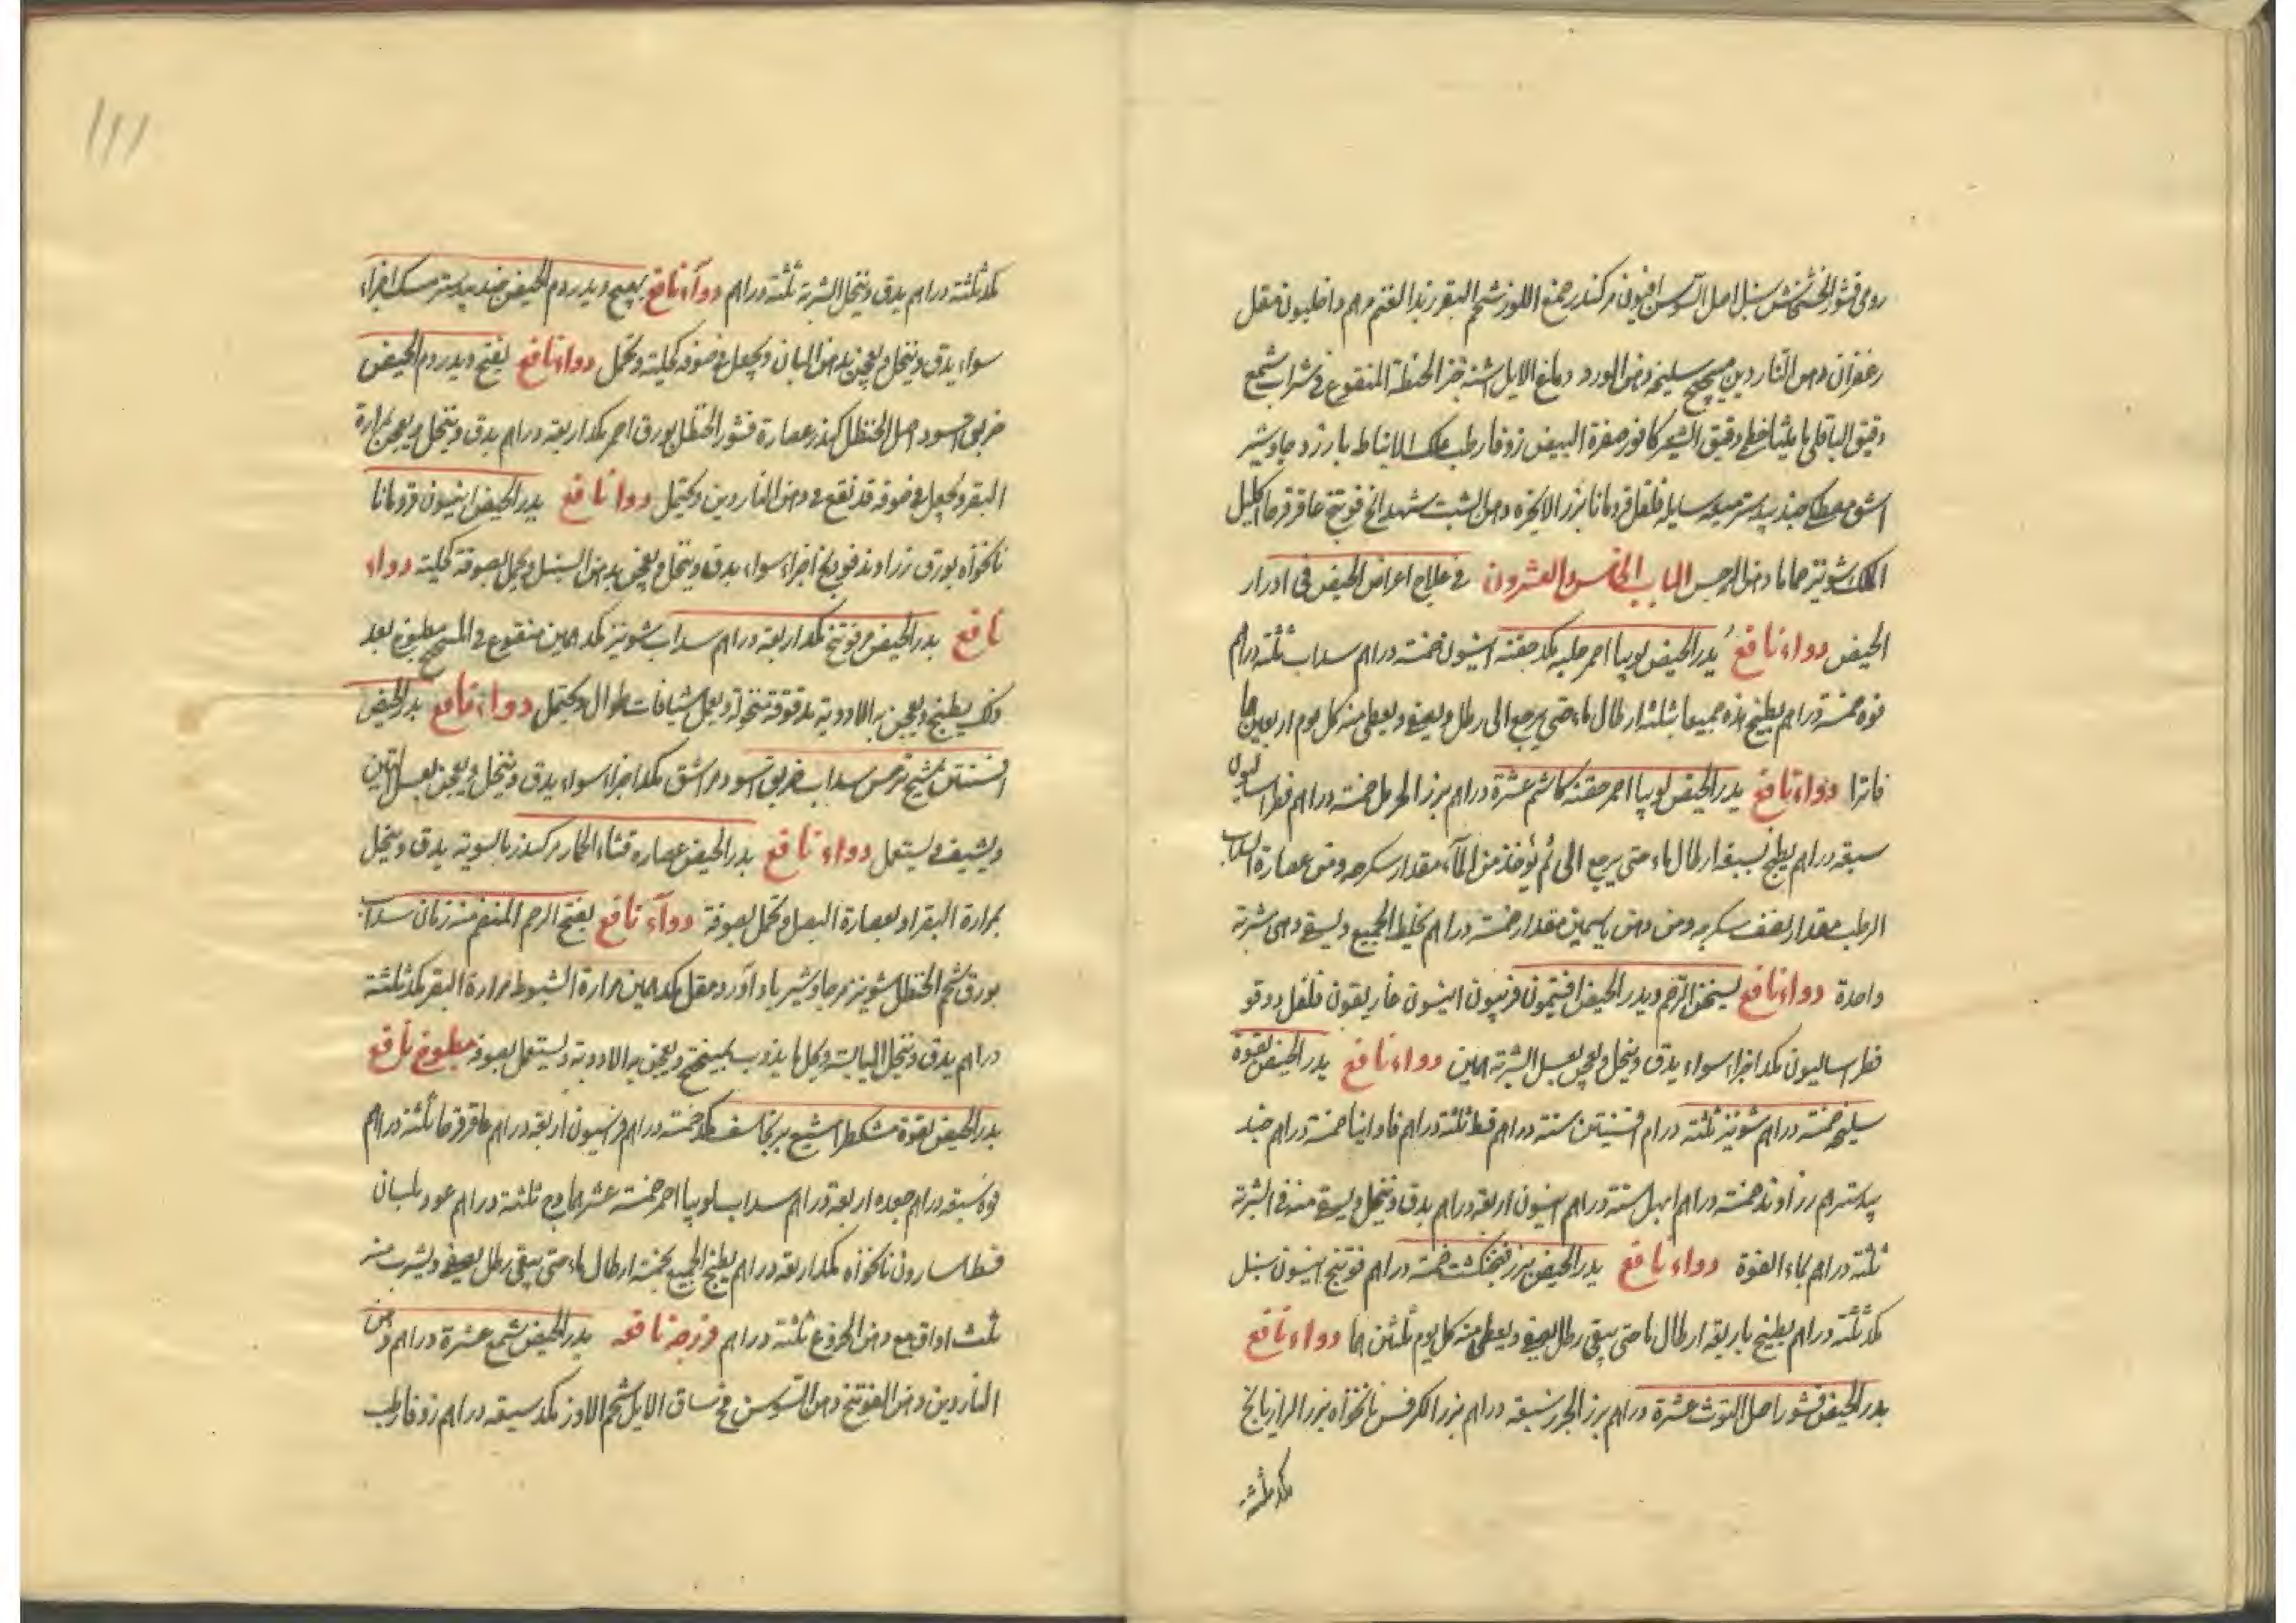 رومی قشور الخشخاش سنبل اصل السوسن افیون مر کندر صمغ اللوز شحم البقر زبد الغنم مرهم داخلیون مقل
زعفران دهن الناردین میبختج سلیخه دهن الورد دماغ الایل اشنه خبز الحنطة المنقوع فی شراب شمع
دقیق الباقلی مامیثا خطمی دقیق الشعیر کافور صفرة البیض زوفا رطب علک الانباط بارزد جاوشیر
اشق مصطکی جندبیدستر میعه سایله فلفل قردمانا بزر الانجره دهن الشبت شهدانج فوتنج عاقرقرحا اکلیل
الملک شونیز حماما دهن النرجس الباب الخامس والعشرون فی علاج اعراض الحیض فی ادرار
الحیض دواء نافع یدر الحیض لوبیا احمر حلبه مکد حفنة انیسون خمسة دراهم سداب ثلثة دراهم
فوه خمسة دراهم یطبخ هذه جمیعا بثلثة ارطال ماء حتی یرجع الی رطل ویصفی ویعطی منه کل یوم اربعین هما
فاترا دواء نافع یدر الحیض لوبیا احمر حفنة کاشم عشرة دراهم بزر الحرمل خمسة دراهم فطراسالیون
سبعة دراهم یطبخ بسبعة ارطال ماء حتی یرجع الی ثم یؤخذ من الماء مقدار سکرجه ومن عصارة السداب
الرطب مقدار نصف سکرجه ومن دهن یاسمین مقدار خمسة دراهم یخلط الجمیع ویسقی وهی شربة
واحدة دواء نافع یسخن الرحم ویدر الحیض افتیمون فربیون انیسون غاریقون فلفل دوقو
فطراسالیون مکد اجزاء سواء یدق وینخل ویعجن بعسل الشربة همین دواء نافع یدر الحیض بقوة
سلیخه خمسة دراهم شونیز ثلثة دراهم افسنتین ستة دراهم قسط ثلثة دراهم فاوانیا خمسة دراهم جند
بیدستر هم زراوند خمسة دراهم ابهل ستة دراهم انیسون اربعة دراهم یدق وینخل ویسقی منه فی الشربة
ثلثة دراهم بماء الفوة دواء نافع یدر الحیض بزر فنجنکشت خمسة دراهم فوتنج انیسون سنبل
مکد ثلثة دراهم یطبخ باربعة ارطال ماء حتی یبقی رطل یصفی ویعطی منه کل یوم ثلثین هما دواء نافع
یدر الحیض قشور اصل التوث عشرة دراهم بزر الجزر سبعة دراهم بزر الکرفس نانخواه بزر الرازیانج
مکد ثلثة
مکد ثلثة دراهم یدق وینخل الشربة ثلثة دراهم دوآء نافع یهیج ویدر دم الحیض جندبیدستر مسک اجزاء
سواء یدق وینخل ویعجن بدهن البان ویجعل فی صوفه کیلته وتحمل دواء نافع یفتح ویدر دم الحیض
خربق اسود اصل الحنظل کندر عصارة قشور الحنظل بورق احمر مکد اربعة دراهم یدق وینخل ویعجن بمرارة
البقر ویجعل فی صوفه قد نقع فی دهن الناردین ویحتمل دواء نافع یدر الحیض انیسون قردمانا
نانخواه بورق زراوند فوتنج اجزاء سواء یدق وینخل ویعجن بدهن السنبل ویحمل بصوفة کیلته دواء
نافع یدر الحیض مر فوتنج مکد اربعة دراهم سداب شونیز مکد همین منقوع فی المیبختج مطبوخ بعد
ذلک یطبخ ویعجن به الادویة مدقوقة منخولة ویعمل شیافات طوال ویحتمل دواء نافع یدر الحیض
افسنتین شیح ترمس سداب خربق اسود مر اشق مکد اجزاء سواء یدق وینخل ویعجن بعسل التین
ویشیف ویستعمل دواء نافع یدر الحیض عصاره قثاء الحمار مر کندر بالسویة یدق وینخل
بمرارة البقر او بعصارة البصل وتحمل بصوفة دوآء نافع یفتح الرحم المنضم منذ زمان سداب
بورق شحم الحنظل شونیز مر جاوشیر باداورد مقل مکد همین مرارة الشبوط مرارة البقر مکد ثلثة
دراهم یدق وینخل الیابسة ویحل ما یذوب بمیبختج ویعجن به الادویة ویستعمل بصوفه مطبوخ نافع
یدر الحیض بقوة مشکطرامشیع برنجاسف مکد خمسة دراهم فراسیون اربعة دراهم عاقرقرحا ثلثة دراهم
فوه سبعة دراهم جعده اربعة دراهم سداب لوبیا احمر خمسة عشر هما وج ثلثة دراهم عود بلسان
قسط اسارون نانخواه مکد اربعة دراهم یطبخ الجمیع بخمسة ارطال ماء حتی یبقی رطل یصفی ویشرب منه
ثلث اواق مع دهن الخروع ثلثة دراهم فرزجة نافعه یدر الحیض شمع عشرة دراهم دهن
الناردین دهن الفوتنج دهن السوسن مخ ساق الایل شحم الاوز مکد سبعة دراهم زوفا رطب
۱۱۱